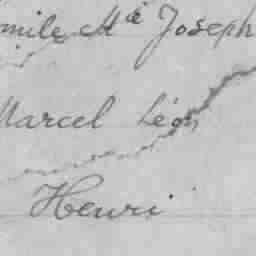 mile Mie Joseph
Marcel Léon
Henri